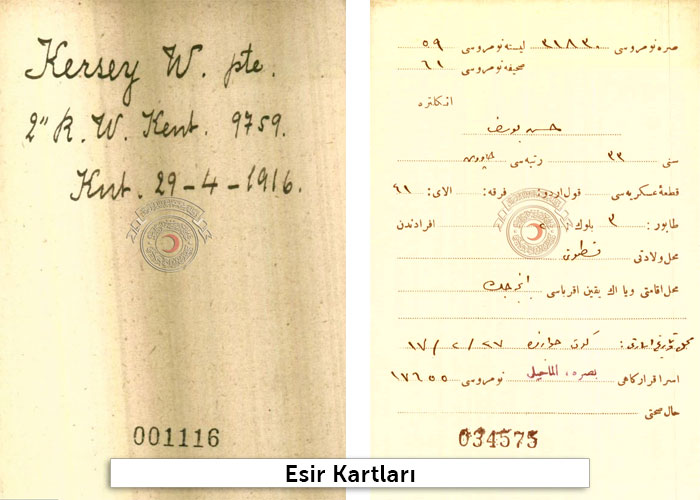 Kersey W. pte.
2" R. W. Kent. 9759.
Kut. 29-4-1916.
001116
صره نومروسی ٣١٨٣٠ لیسته نومروسی ٥٩
صحیفه نومروسی ٦١
انكلتره
حسن یوسف
سنی ٣٣ رتبه سی
قطعۀ عسكریه سی قول اردو: فرقه: الای: ٤١
طابور: ٣ بلوك افرادندن
محل ولادتی قسطمونی
محل اقامتی ویا اك یقین اقرباسی
١٧/٢/٢٧
اسرا قرارگاهی بصره، الماجیل نومروسی ١٧٦٥٥
حال صحتی
034575
Esir Kartları